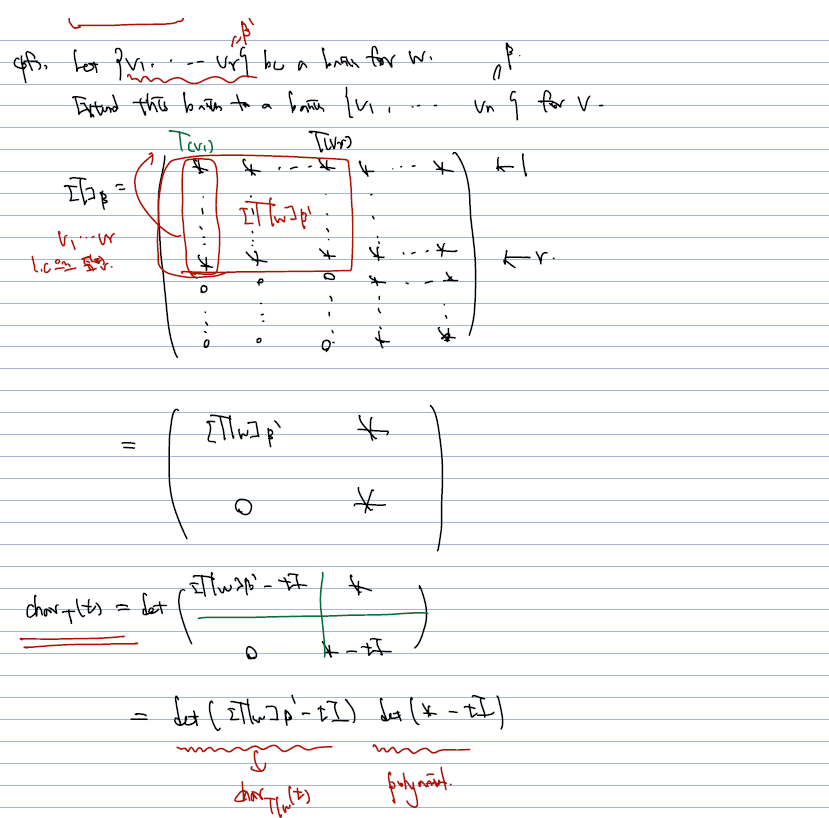 pf). Let {v₁ ⋯ vᵣ} be a basis for W. = β'
Extend this basis to a basis {v₁, ⋯ vₙ} for V. = β
T(v₁) T(vᵣ)
[T]_β = ( * * ⋯ * * ⋯ * ) ← 1
[T|w]_β'
v₁ ⋯ vᵣ
l.c
* * * * ⋯ * ← r.
0 0 0 * ⋯ *
0 0 0 * *
= ( [T|w]_β' *
0 * )
char_T(t) = det ( [T|w]_β' - tI *
0 * - tI )
= det ( [T|w]_β' - tI ) det ( * - tI )
char_T|w(t) polynomial.